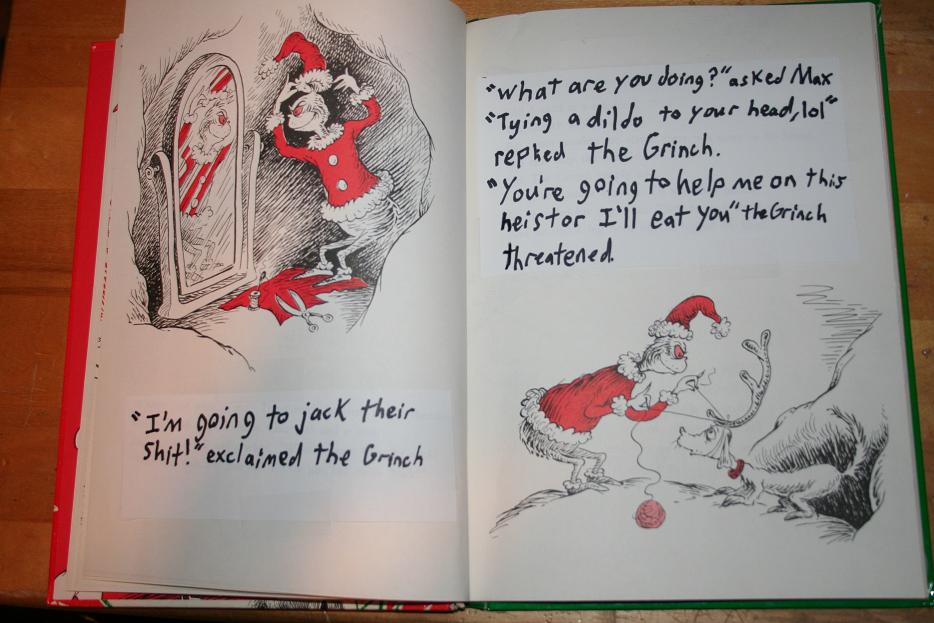 "I'm going to jack their
shit!" exclaimed the Grinch
"What are you doing?" asked Max
"Tying a dildo to your head, lol"
replied the Grinch.
"You're going to help me on this
heist or I'll eat you" the Grinch
threatened.